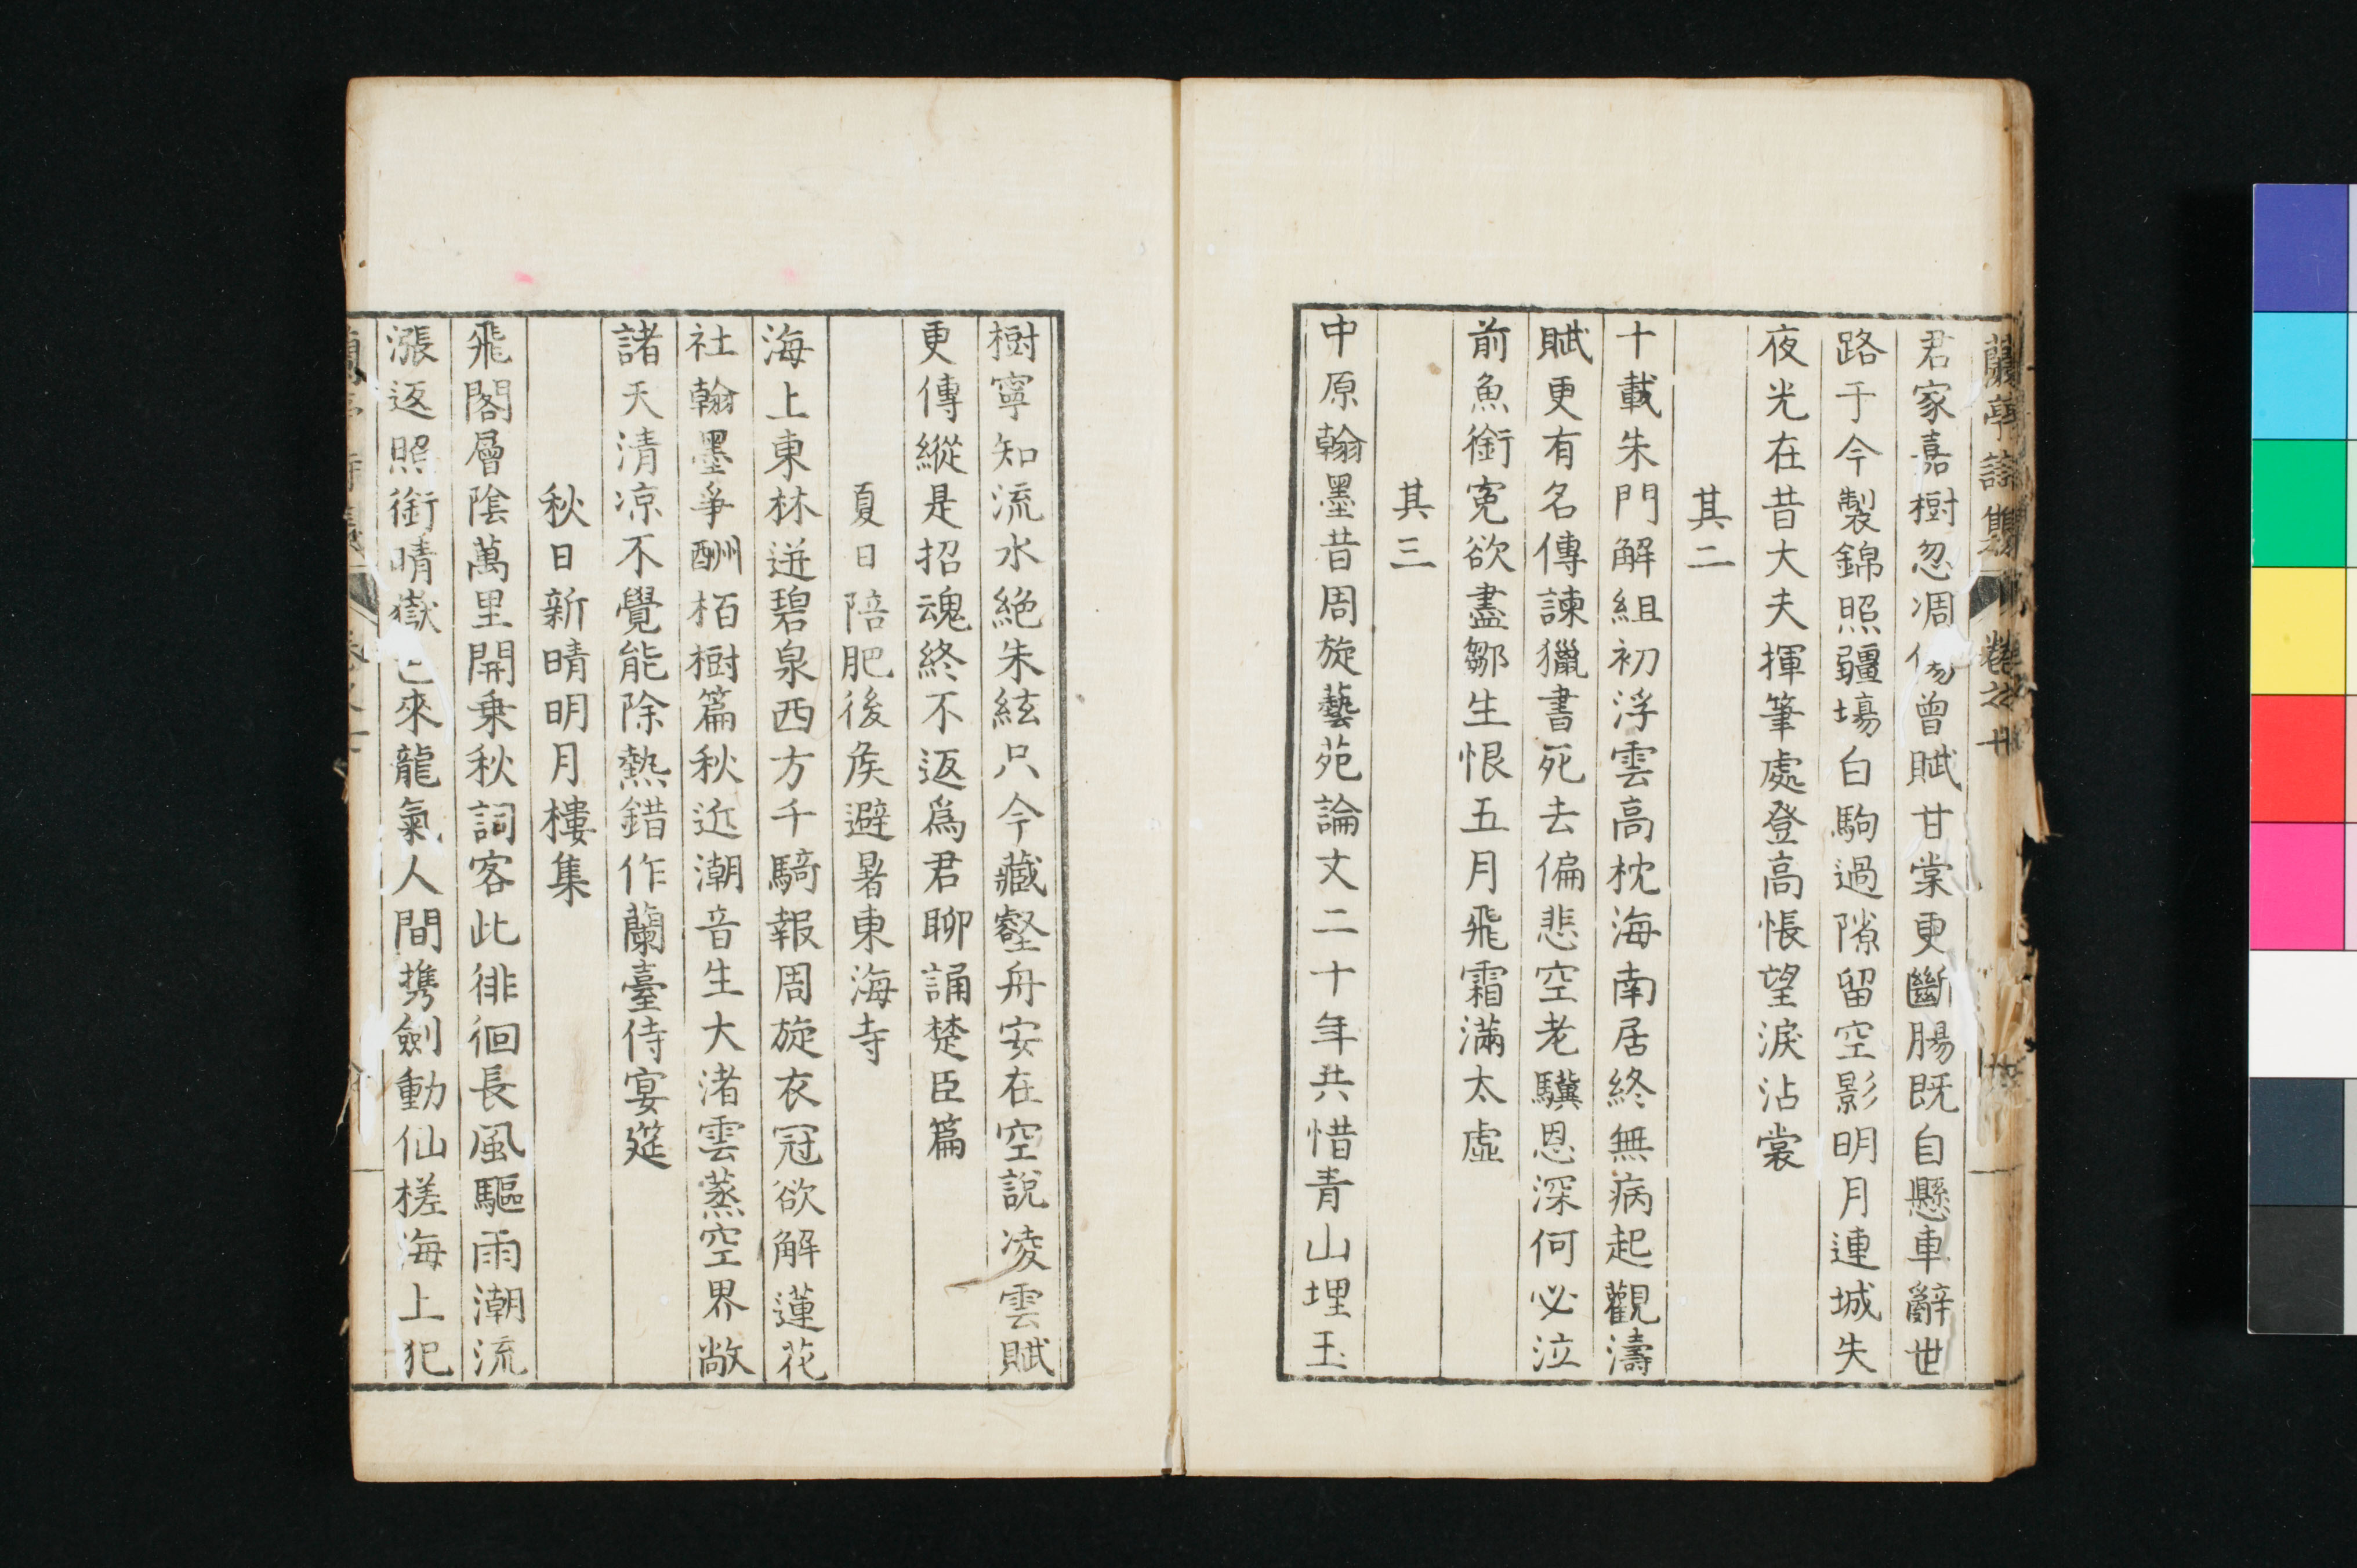 君家嘉樹忽凋傷曾賦甘棠更斷腸既自懸車辭世
路于今製錦照疆塲白駒過隙留空影明月連城失
夜光在昔大夫揮筆處登高悵望淚沾裳
其二
十載朱門解組初浮雲高枕海南居終無病起觀濤
賦更有名傳諫獵書死去偏悲空老驥恩深何必泣
前魚銜寃欲盡鄒生恨五月飛霜滿太虛
其三
中原翰墨昔周旋藝苑論文二十年共惜青山埋玉
樹寧知流水絶朱絃只今藏壑舟安在空說凌雲賦
更傳縱是招魂終不返爲君聊誦楚臣篇
夏日陪肥後矦避暑東海寺
海上東林迸碧泉西方千騎報周旋衣冠欲解蓮花
社翰墨爭酬栢樹篇秋近潮音生大渚雲蒸空界敞
諸天清凉不覺能除熱錯作蘭臺侍宴筵
秋日新晴明月樓集
飛閣層陰萬里開乗秋詞客此徘徊長風驅雨潮流
漲返照銜晴嶽色來龍氣人間携劍動仙槎海上犯